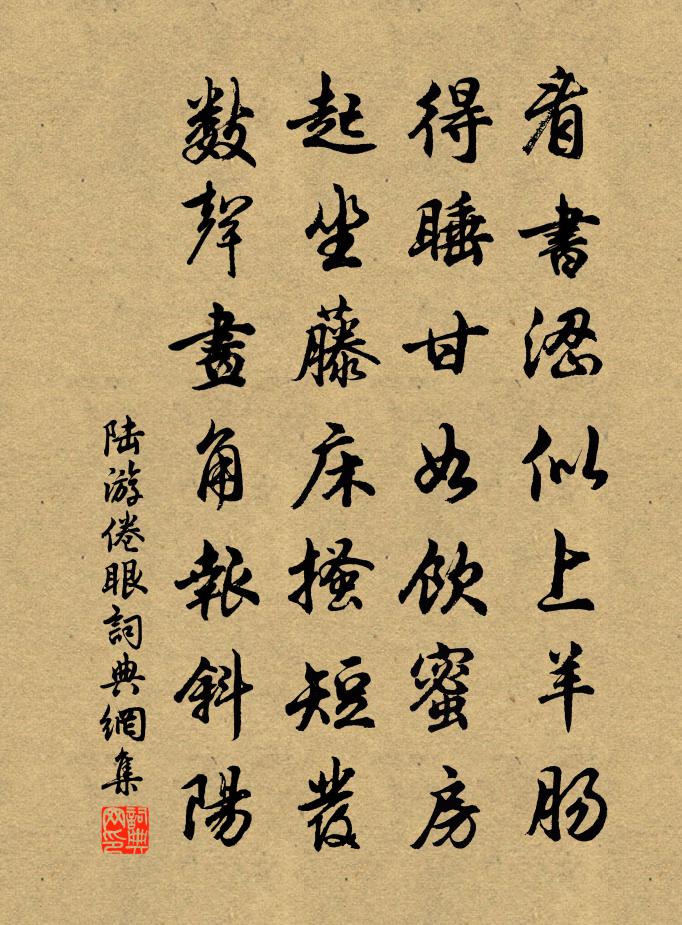 看書澀似上羊腸
得睡甘如飲蜜房
起坐藤床搔短發
數聲畫角報斜陽
陸游倦眼詞典網集
詞典網印